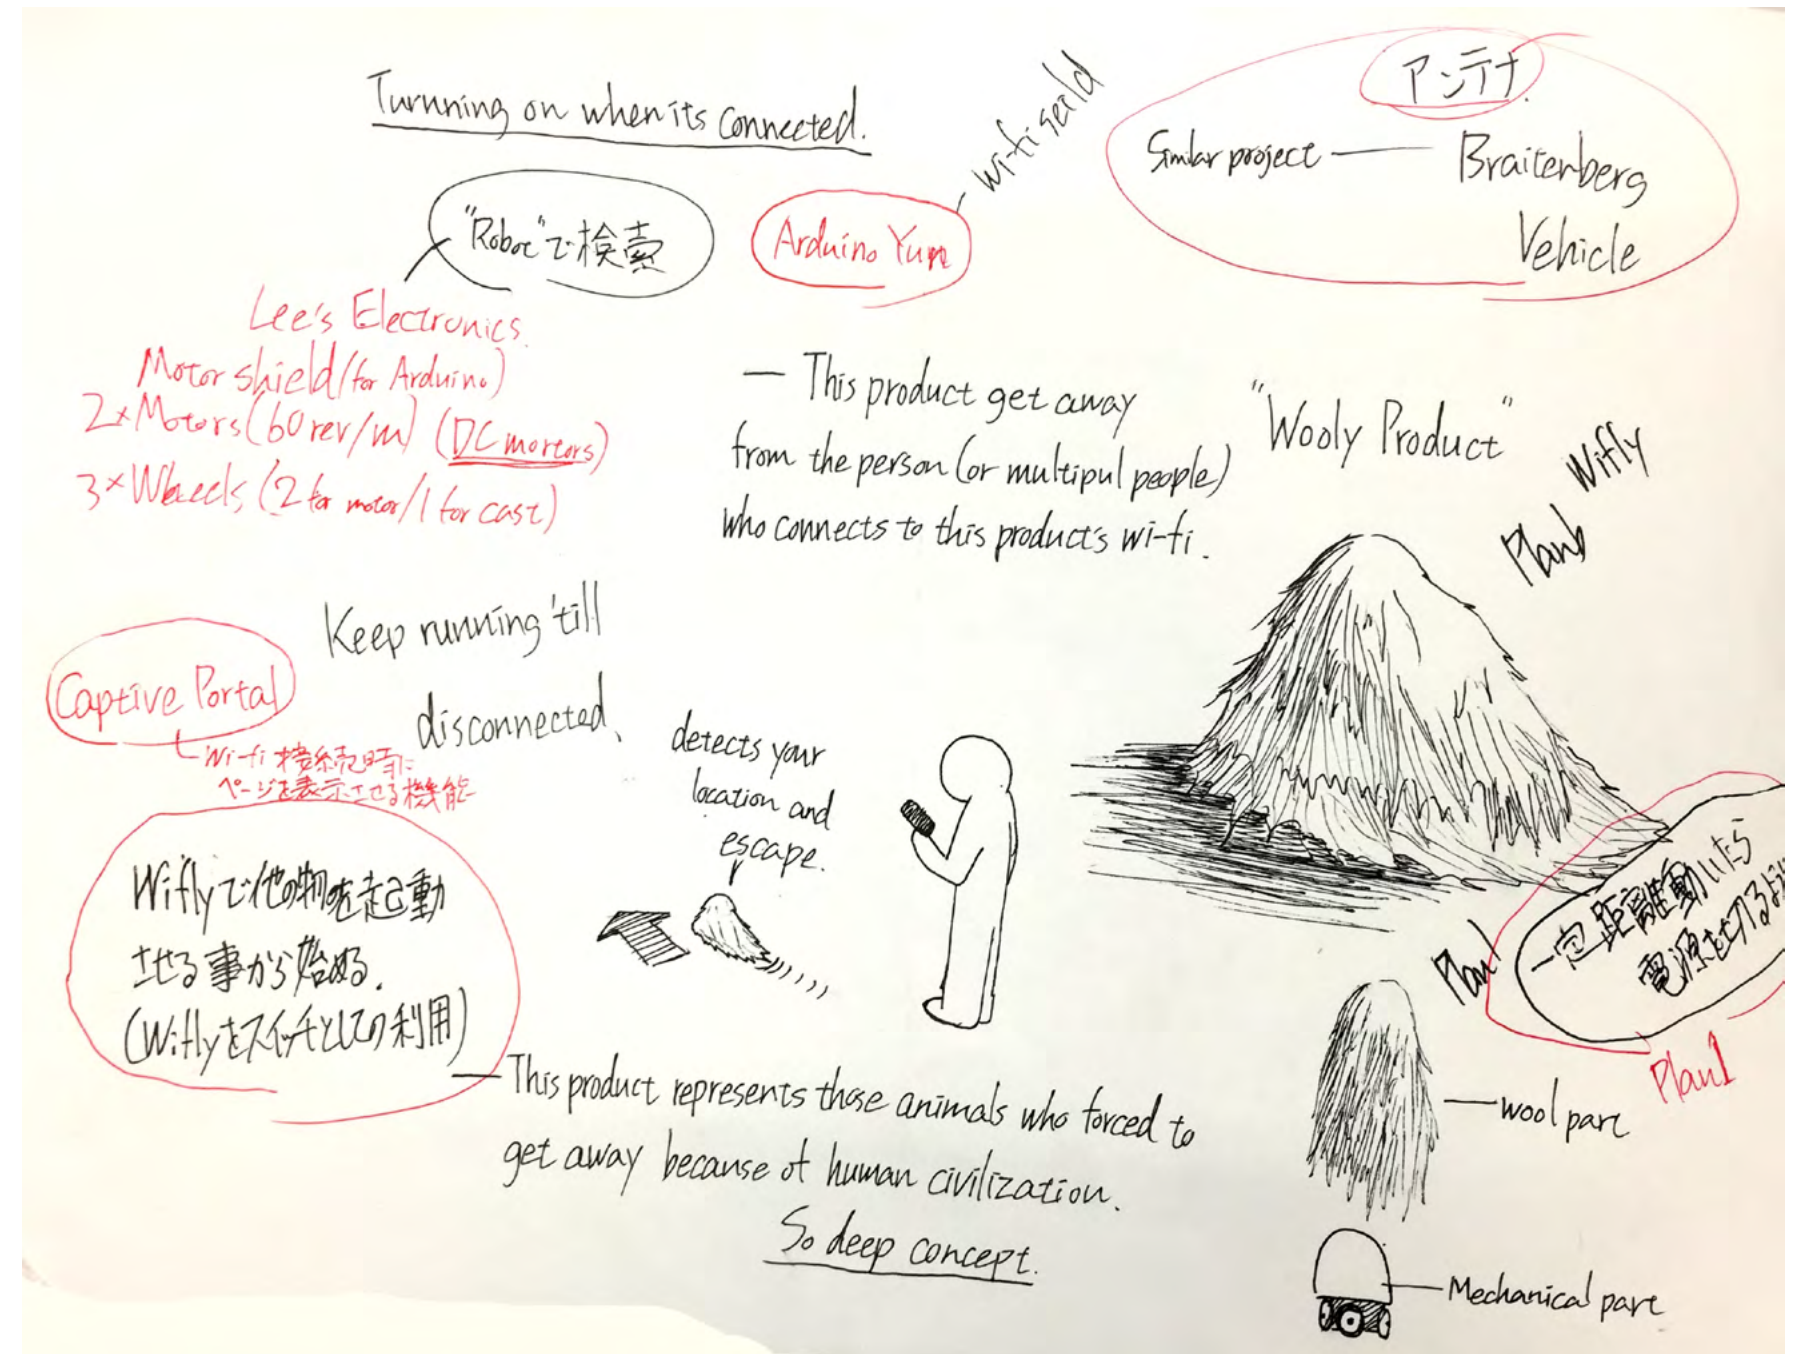 Turnning on when its connected.
wi-fi seild
アンテナ.
Similar project — Braitenberg
Vehicle
"Robot"で検索
Arduino Yun
Lee's Electronics.
Motor shield (for Arduino)
2×Motors (60rev/m) (DC mortors)
3×Wheels (2 for motor/1 for cast)
— This product get away
from the person (or multipul people)
who connects to this product's wi-fi.
"Wooly Product"
Wifly
Planb
Keep running 'till
disconnected.
Captive Portal
Wi-fi 接続時に
ページを表示させる機能
detects your
location and
escape.
Wiflyで他の物を起動
させる事から始める.
(Wiflyをスイッチとしての利用)
Plan1
一定距離動いたら
電源を切るよう
Plan1
— This product represents those animals who forced to
get away because of human civilization.
So deep concept.
wool part
Mechanical part